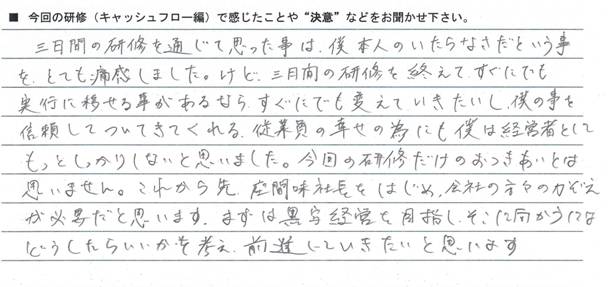 ■ 今回の研修（キャッシュフロー編）で感じたことや“決意”などをお聞かせ下さい。
三日間の研修を通じて思った事は、僕本人のいたらなさだという事
を、とても痛感しました。けど、三日間の研修を終えて、すぐにでも
実行に移せる事があるなら、すぐにでも変えていきたいし、僕の事を
信頼してついてきてくれる、従業員の幸せの為にも僕は経営者として
もっとしっかりしないと思いました。今回の研修だけのおつきあいとは
思いません。これから先、座間味社長をはじめ、会社の方々の力ぞえ
が必要だと思います。まずは黒字経営を目指し、そこに向かうには
どうしたらいいかを考え、前進していきたいと思います